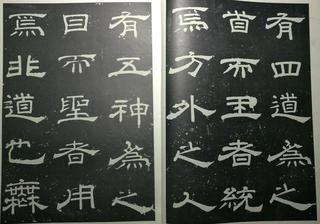 有四道為之
首而王者統
焉方外之人
有五神為之
目而聖者用
焉非道也無